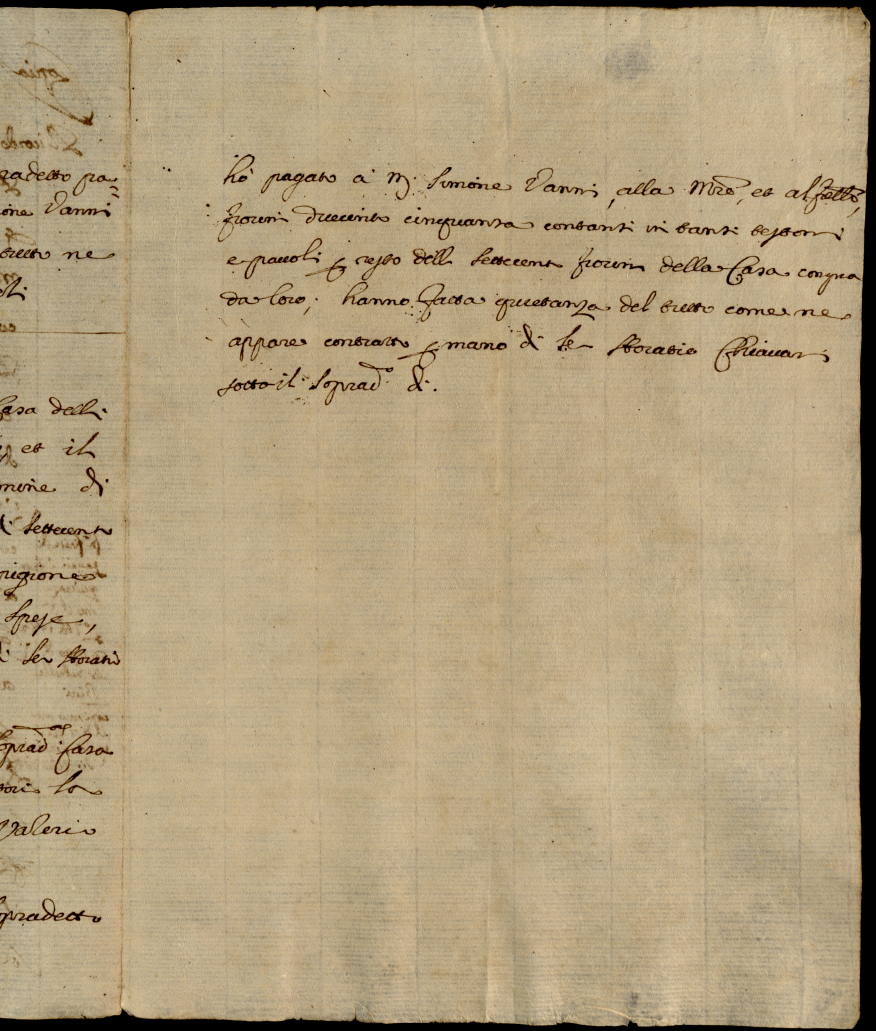 radetto pa=
ione Vanni
tutto ne
Casa delli
et il
mone di
settecento
pigione
spese,
di Ser Horatio
soprad. Casa
la
Valerio
opradetto
hò pagato à M. Simone Vanni, alla Mre, et al fello,
fiorini ducento cinquanta contanti in tanti testoni
e pauoli p resto delli settecento fiorini della Casa compra
da loro; hanno fatta quietanza del tutto come ne
appare contratto p mano di Ser Horatio Chiauari
sotto il soprad.o dì.